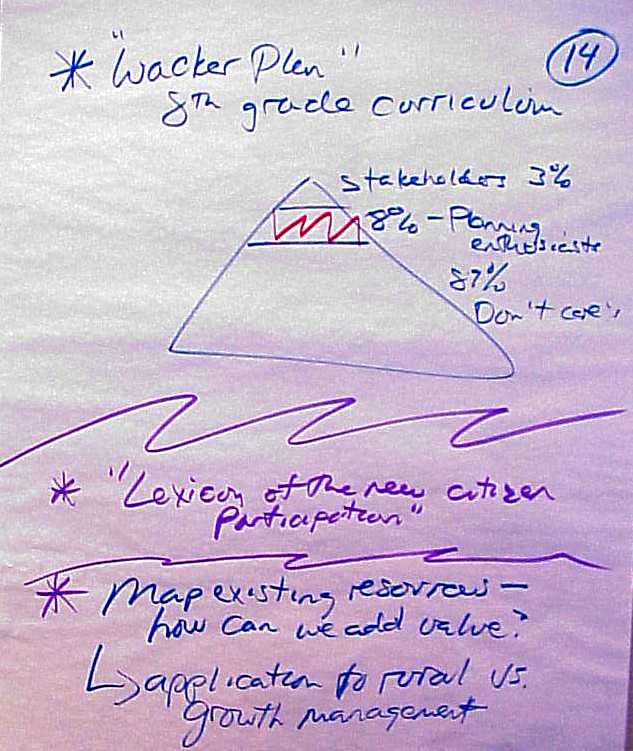 * "Wacker Plan"
14
8th grade curriculum
stakeholders 3%
8% - Planning
enthusiasts
87%
Don't care's
* "Lexicon of the new citizen
Participation"
* Map existing resources -
how can we add value?
↳ application to rural vs.
Growth management